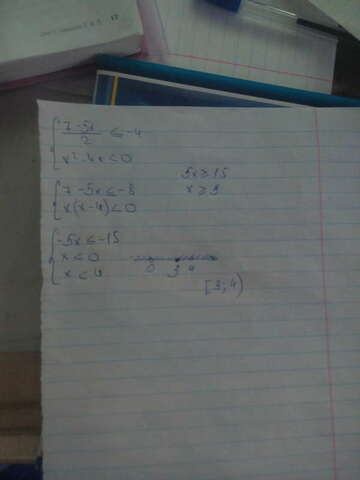 17
{ (7-5x)/2 ≤ -4
x² - 4x < 0
{ 7 - 5x ≤ -8
x(x-4) < 0
5x ≥ 15
x ≥ 3
{ -5x ≤ -15
x ≤ 0
x ≤ 4
0 3 4
[3; 4)